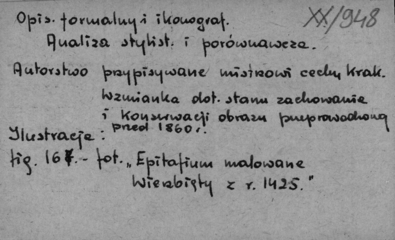 XX/948
Opis. formalny i ikonograf.
Analiza stylist. i porównawcza.
Autorstwo przypisywane mistrzowi cechu krak.
Wzmianka dot. stanu zachowania
i konserwacji obrazu przeprowadzonej
przed 1860 r.
Ilustracja:
fig. 167. - fot. „Epitafium malowane
Wierzbięty z r. 1425."